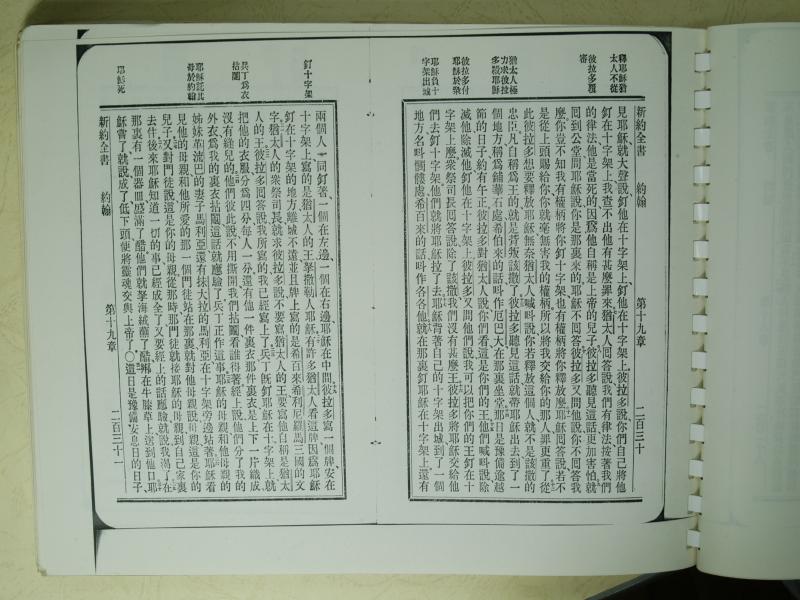 釋耶穌猶
太人不從
彼拉多覆
審
猶太人極
力求彼拉
多殺耶穌
彼拉多付
耶穌於衆
耶穌負十
字架出城
新約全書 約翰 第十九章 二百三十
見耶穌就大聲說釘他在十字架上釘他在十字架上彼拉多說你們自己將他
釘在十字架上我查不出他有甚麼罪來猶太人囘答說我們有律法按著我們
的律法他是當死的因爲他自稱是上帝的兒子彼拉多聽見這話更加害怕就
囘到公堂問耶穌說你是那裏來的耶穌不囘答彼拉多又問他說你不囘答我
麼你豈不知我有權柄將你釘十字架也有權柄將你釋放麼耶穌囘答說若不
是從上頭賜給你你就毫無害我的權柄所以將我交給你的那人罪更重了從
此彼拉多想要釋放耶穌無奈猶太人喊叫說你若釋放這個人就不是該撒的
忠臣凡自稱爲王的就是背叛該撒了彼拉多聽見這話就帶耶穌出去到了一
個地方稱爲鋪華石處希伯來的話叫作厄巴大在那裏坐堂那日是豫備逾越
節的日子約有午正彼拉多對猶太人說你們看這是你們的王他們喊叫說除
滅他除滅他釘他在十字架上彼拉多又問他們說我可以把你們的王釘在十
字架上麼衆祭司長囘答說除了該撒我們沒有甚麼王彼拉多將耶穌交給他
們去釘十字架他們就將耶穌拉了去耶穌背著自己的十字架出城到了一個
地方名叫髑髏處希百來的話叫作各各他就在那裏釘耶穌在十字架上還有
釘十字架
兵丁爲衣
拈鬮
耶穌託其
母於約翰
耶穌死
兩個人一同釘著一個在左邊一個在右邊耶穌在中間彼拉多寫一個牌安在
十字架上寫的是猶太人的王拏撒勒人耶穌有許多猶太人看這牌因爲耶穌
釘在十字架的地方離城不遠並且牌上寫的是希百來希利尼羅馬三國的文
字猶太人的衆祭司長就求彼拉多說不要寫猶太人的王要寫他自稱是猶太
人的王彼拉多囘答說我所寫的我已經寫上了兵丁旣釘耶穌在十字架上就
把他的衣服分爲四分每人一分還有他一件裏衣那件裏衣是上下一片織成
沒有縫兒的他們彼此說不用撕開我們拈鬮看誰得著經上說他們分了我的
外衣爲我的裏衣拈鬮這話就應驗了兵丁正作這事耶穌的母親和他母親的
姊妹革流巴的妻子馬利亞還有抹大拉的馬利亞在十字架旁邊站著耶穌看
見他的母親和他所愛的那一個門徒站在那裏就對他母親說母親這是你的
兒子又對門徒說這是你的母親從那時那門徒就接耶穌的母親到自己家裏
去住後來耶穌知道一切的事已經成全了又要經上的話應驗就說我渴了在
那裏有一個器皿盛滿了醋他們就拏海絨蘸了醋綁在牛膝草上送到他口耶
穌嘗了就說成了低下頭便將靈魂交與上帝了〇這日是豫備安息日的日子
新約全書 約翰 第十九章 二百三十一